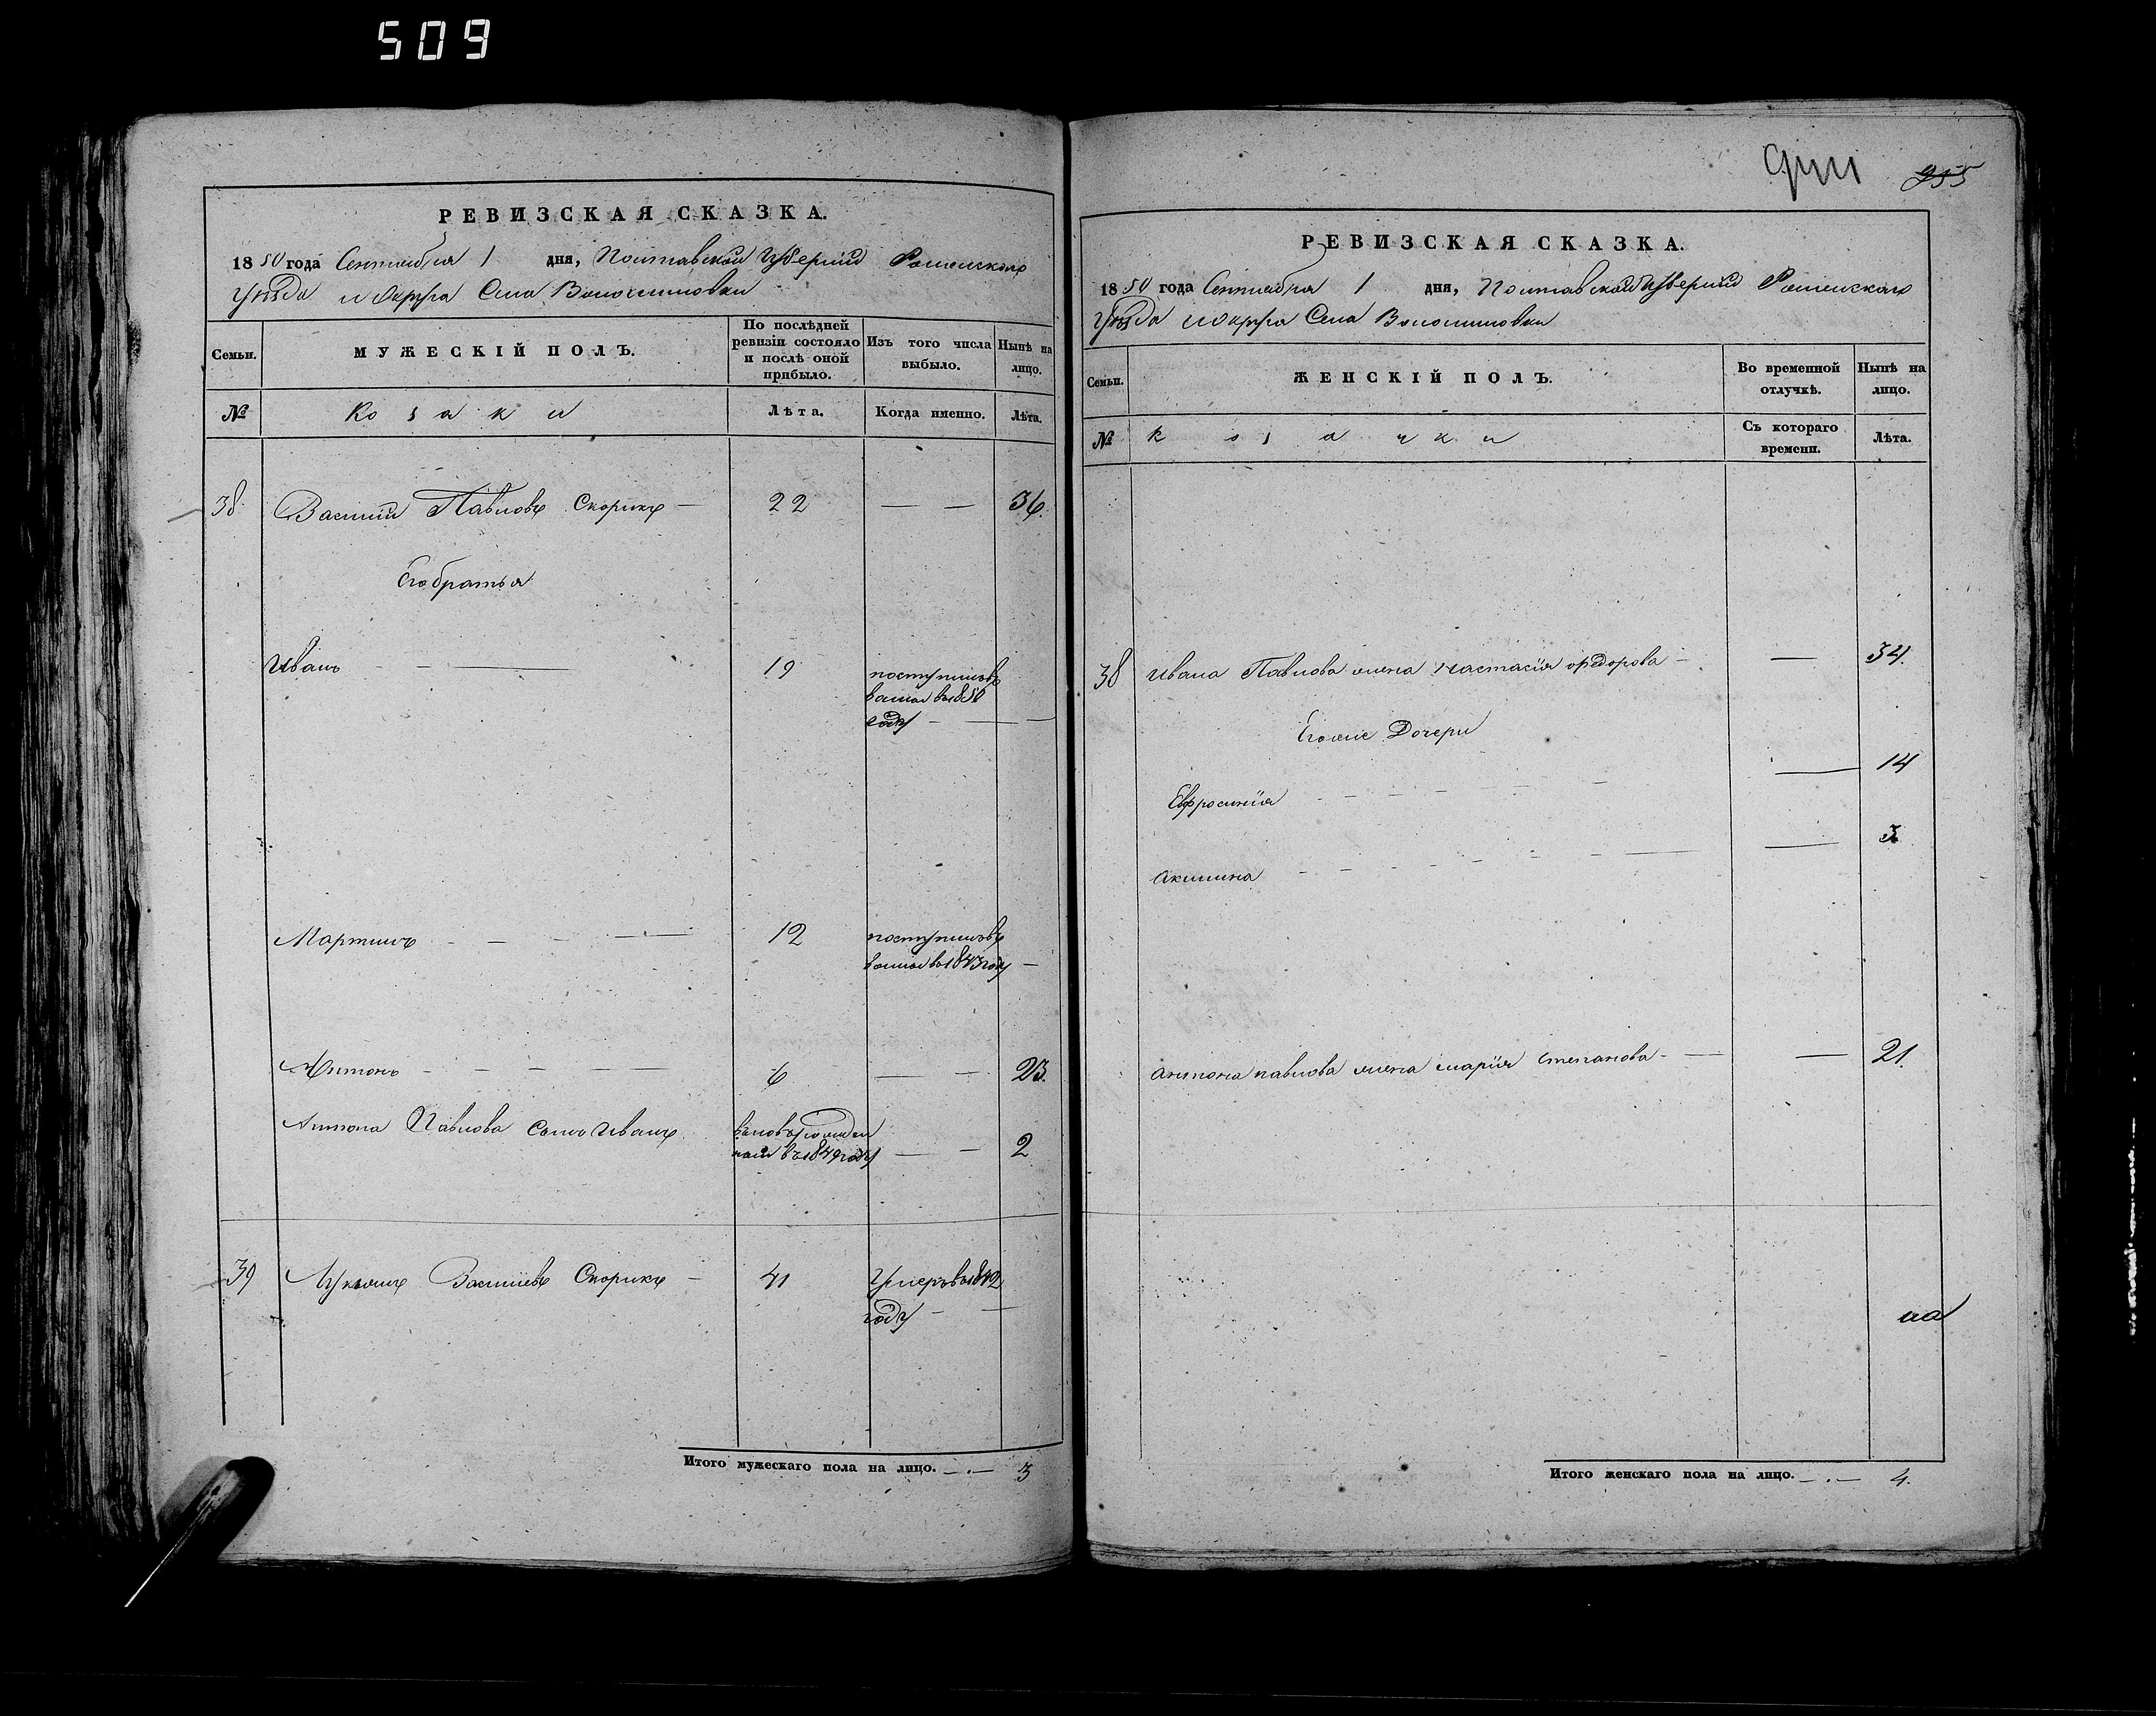 509
РЕВИЗСКАЯ СКАЗКА.
1850 года Сентября 1 дня, Полтавской Губерніи Роменскаго
Уѣзда и Округа Села Волошиновки
Семьи.
МУЖЕСКІЙ ПОЛЪ.
По послѣдней ревизіи состояло и послѣ оной прибыло.
Изъ того числа выбыло.
Нынѣ на лицо.
№
Козаки
Лѣта.
Когда именно.
Лѣта.
38 Василій Павловъ Скорикъ — 22 — — 36.
Его братья
Иванъ — 19 поступилъ въ
1850
году —
Мартинъ — 12 поступилъ въ
въ 1843 году —
Антонъ — 6 — — 23.
Антона Павлова сынъ Иванъ вновьрожден
ный въ 1849 году — — 2
39 Лукьянъ Васильевъ Скорикъ — 41 Умеръ въ 1842
году —
Итого мужескаго пола на лицо. — 3
955
РЕВИЗСКАЯ СКАЗКА.
1850 года Сентября 1 дня, Полтавской Губерніи Роменскаго
Уѣзда и Округа Села Волошиновки
Семьи.
ЖЕНСКІЙ ПОЛЪ.
Во временной отлучкѣ.
Нынѣ на лицо.
№
Козачки
Съ котораго времени.
Лѣта.
38 Ивана Павлова жена Настасія Федорова — — 34.
Его же Дочери
Евфросинія — 14
Акилина — 3
Антона Павлова жена Марія Степанова — — 21.
на
Итого женскаго пола на лицо. — 4.